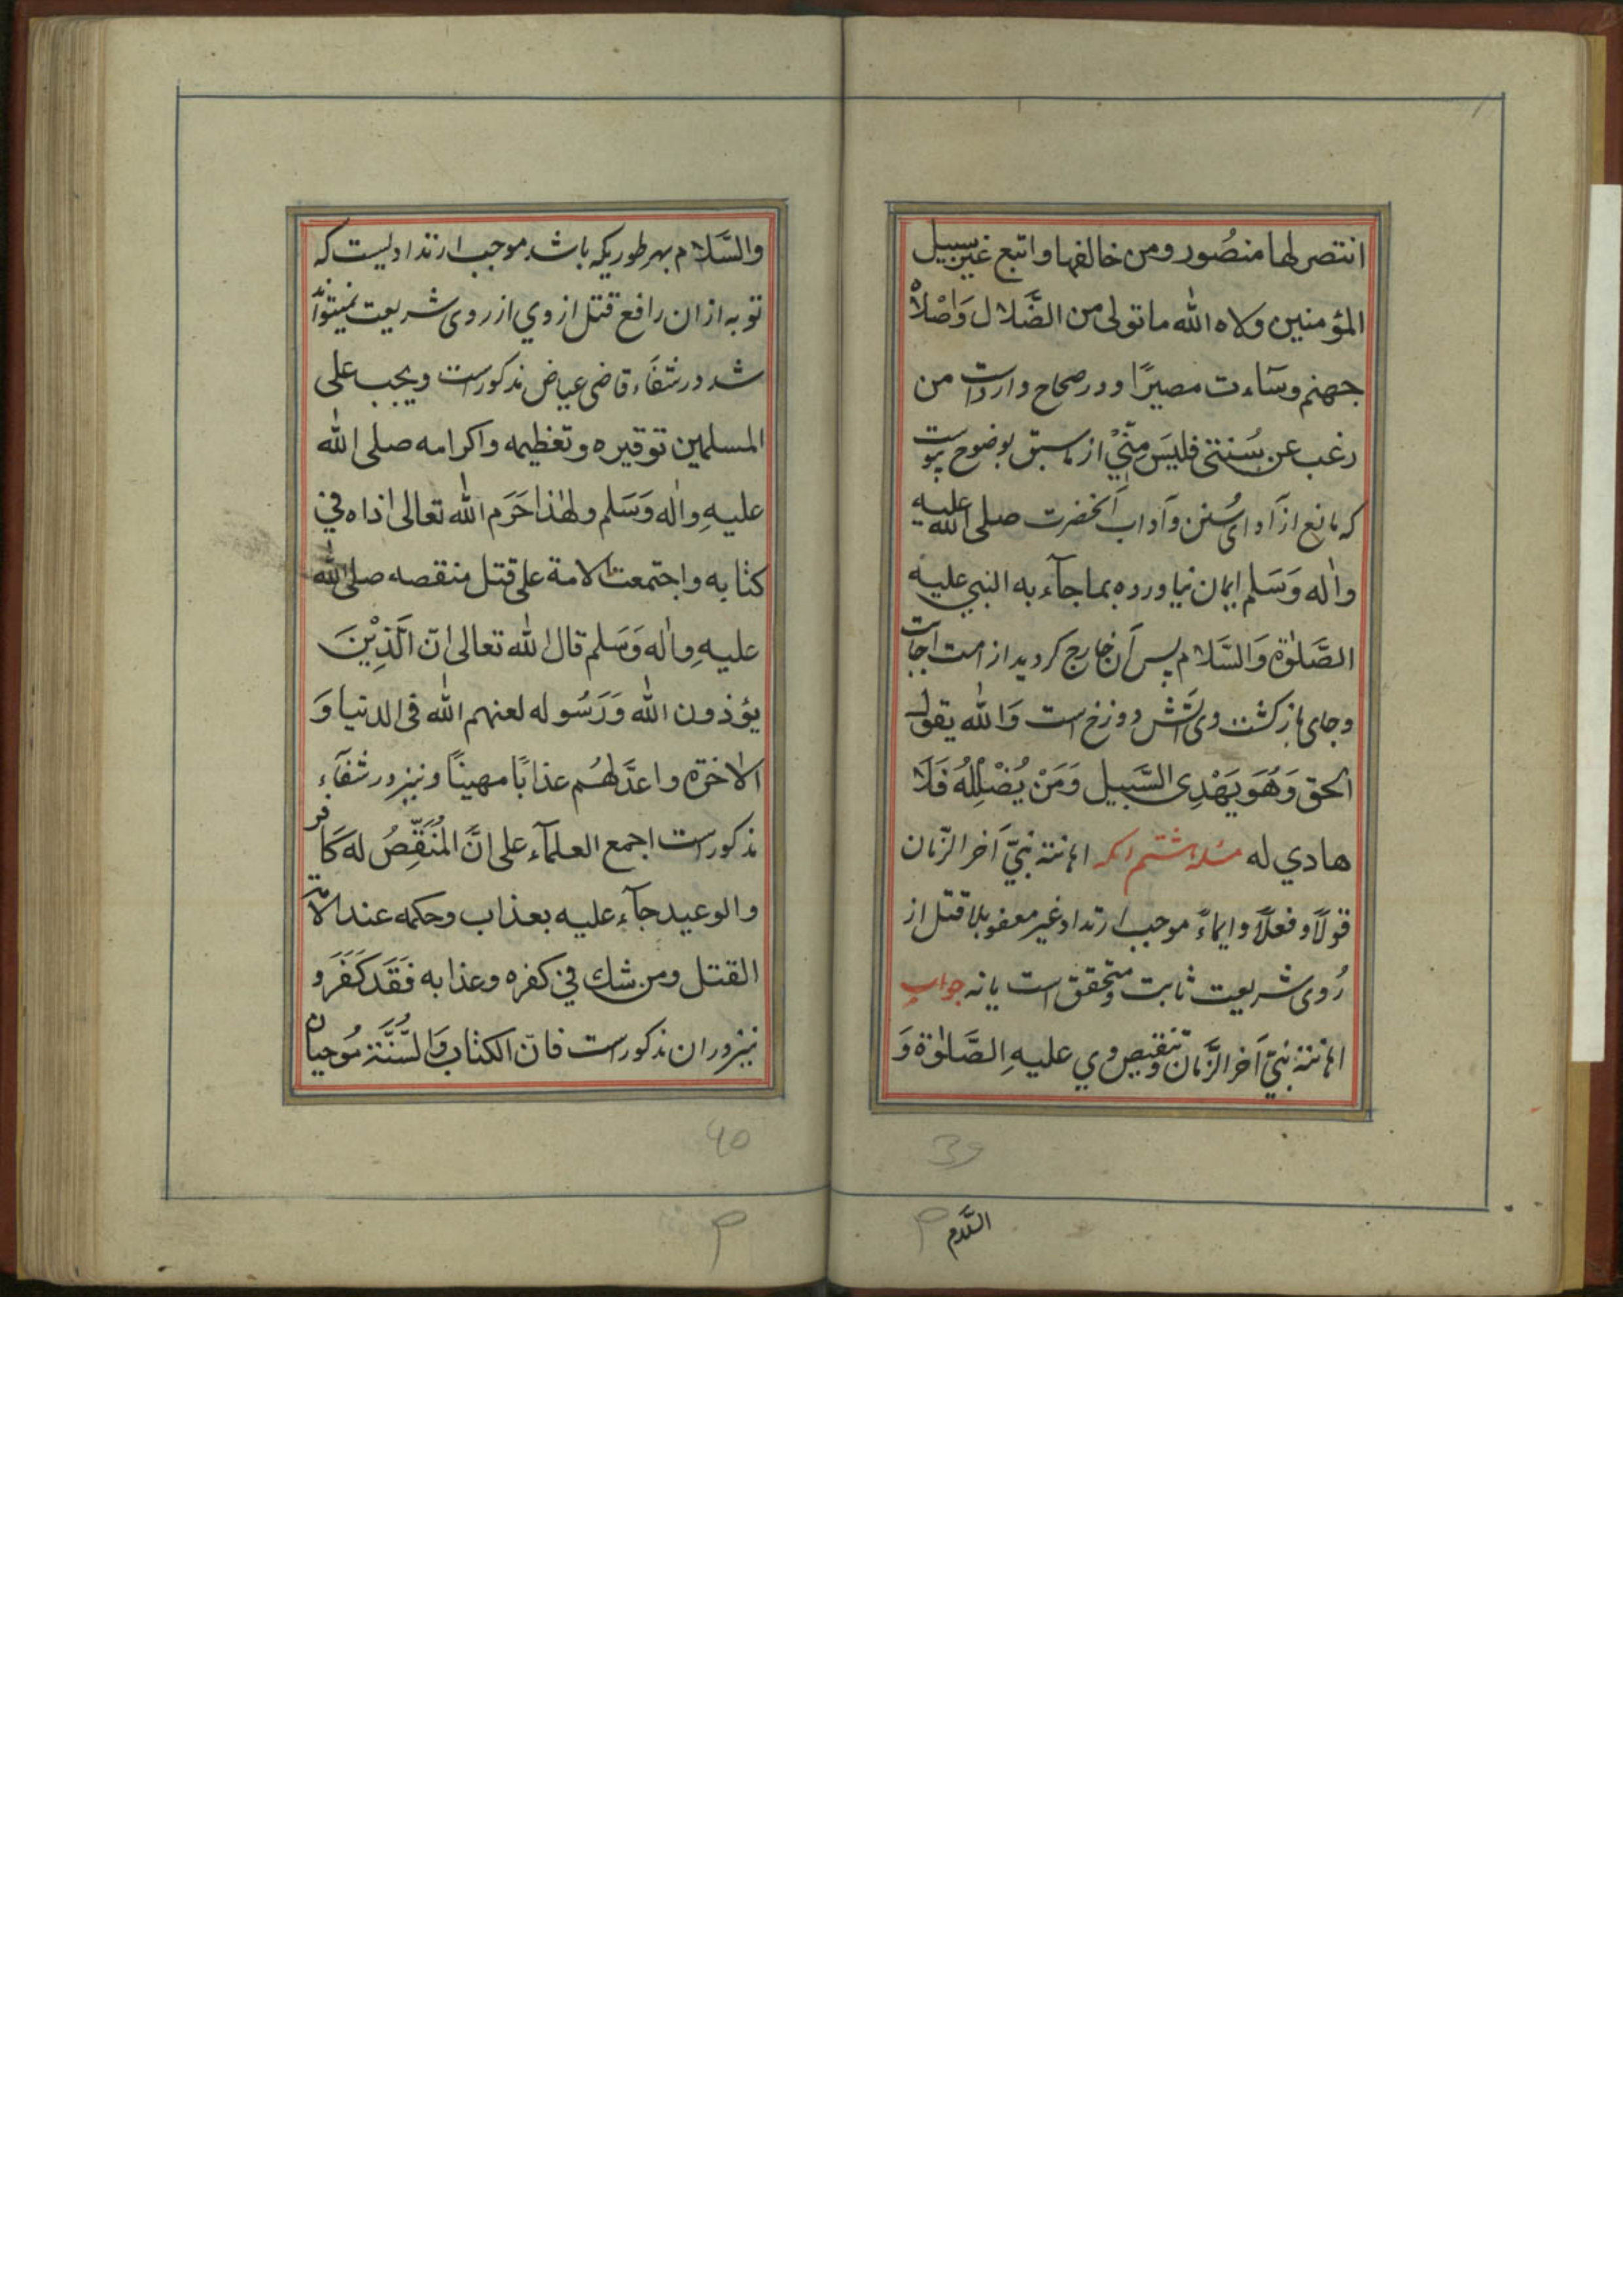 انتصر لها منصُور ومن خالفها واتبع غير سبيل
المؤمنين ولاه الله ما تولى من الضَّلال وَاصْلاْه
جهنم وسَاءت مصيرًا ودر صحاح وارداست من
رغب عن سُنتى فليسَ مِنّيْ از ماسبق بوضوح پيوست
كه مانع از اداى سُنن وآداب آنحضرت صلى الله عليه
واٰله وَسَلم ايمان نياورده بما جآء به النبي عليه
الصَّلوٰة وَالسَّلام پس آن خارج كرديد از امت اجابت
وجاى بازكشت وى آتش دوزخ است وَالله يقول
الحق وَهُوَ يَهْدِى السَّبيل وَمَنْ يُضْلِلْهُ فَلَا
هادي له مسئله ششم انكه اهانت نبيّ آخر الزّمان
قولاً وفعلاً وايماءً موجب ارتداد غير معفو بلا قتل از
رُوى شريعت ثابت ومتحقق است يا نه جواب
اهانت نبيّ آخر الزَّمان وتنقيص وي عليهِ الصَّلوٰة وَ
39
السَّلام
والسَّلام بهر طوريكه باشد موجب ارتداديست كه
توبه از ان رافع قتل از وي از روى شريعت نميتواند
شد در شفَاء قاضى عياض مذكور است ويجب على
المسلمين توقيره وتعظيمه واكرامه صلى الله
عليهِ واٰله وَسَلم ولهٰذا حَرَم الله تعالى اذاه في
كتابه واجتمعت الامة على قتل منقصه صلى الله
عليهِ واٰله وَسَلم قال الله تعالى انّ الَّذِيْنَ
يؤذون الله وَرَسُوله لعنهم الله فى الدنيا وَ
الاٰخرة واعدَّ لهُم عذابًا مهينًا ونيز در شفآء
مذكور است اجمع العلمآء على انَّ المُنَقِّصُ له كَافر
والوعيد جآء عليه بعذاب وحكمه عند الامّة
القتل ومن شك في كفره وعذابه فَقَد كَفَرَ و
نيز در ان مذكور است فانّ الكتاب وَالسُّنَّة مُوجبان
40